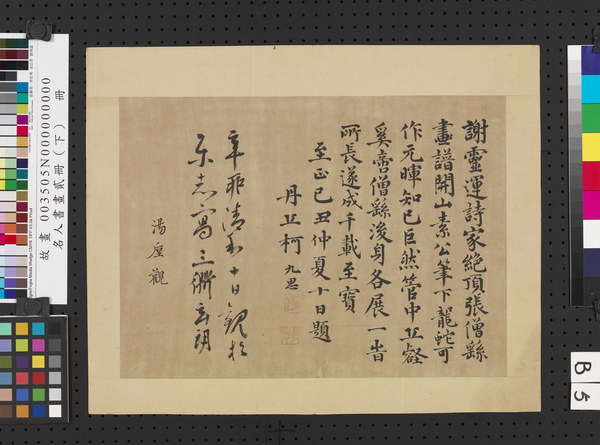 謝靈運詩家絕頂張僧繇
畫譜開山素公筆下龍蛇可
作元暉知己巨然管中丘壑
奚啻僧繇後身各展一峕
所長遂成千載至寶
至正己丑仲夏十日題
丹丘柯九思
辛非清和十日觀於
樂志
湯垕觀
故畫 003505N000000000 冊
名人書畫貳冊(下) 冊
B 5